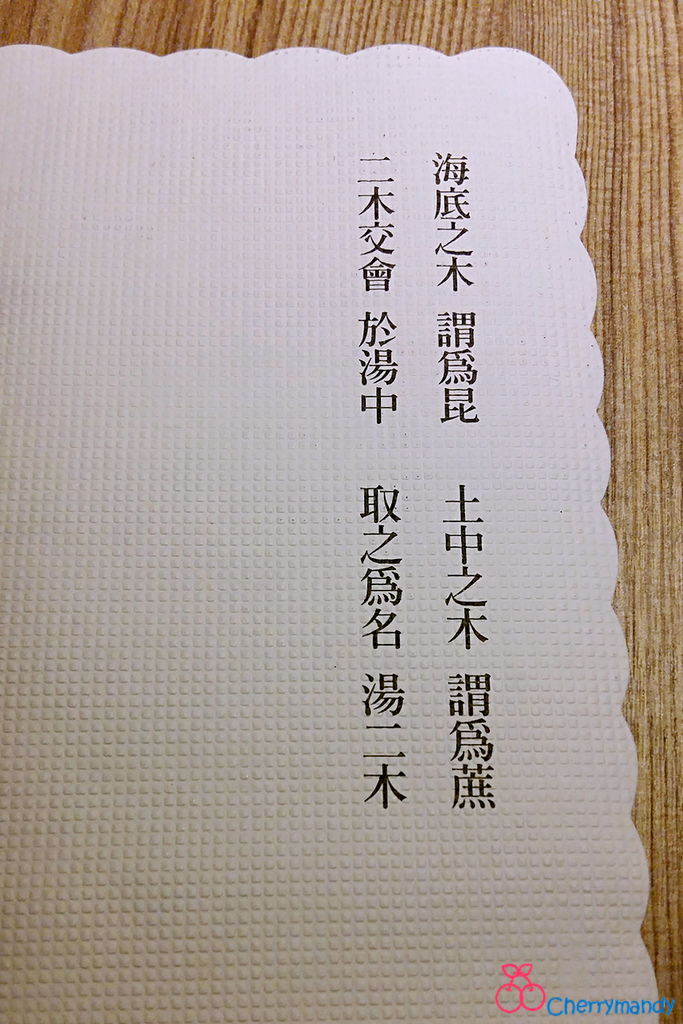 海底之木　謂爲昆　土中之木　謂爲蔗
二木交會　於湯中　取之爲名　湯二木
Cherrymandy